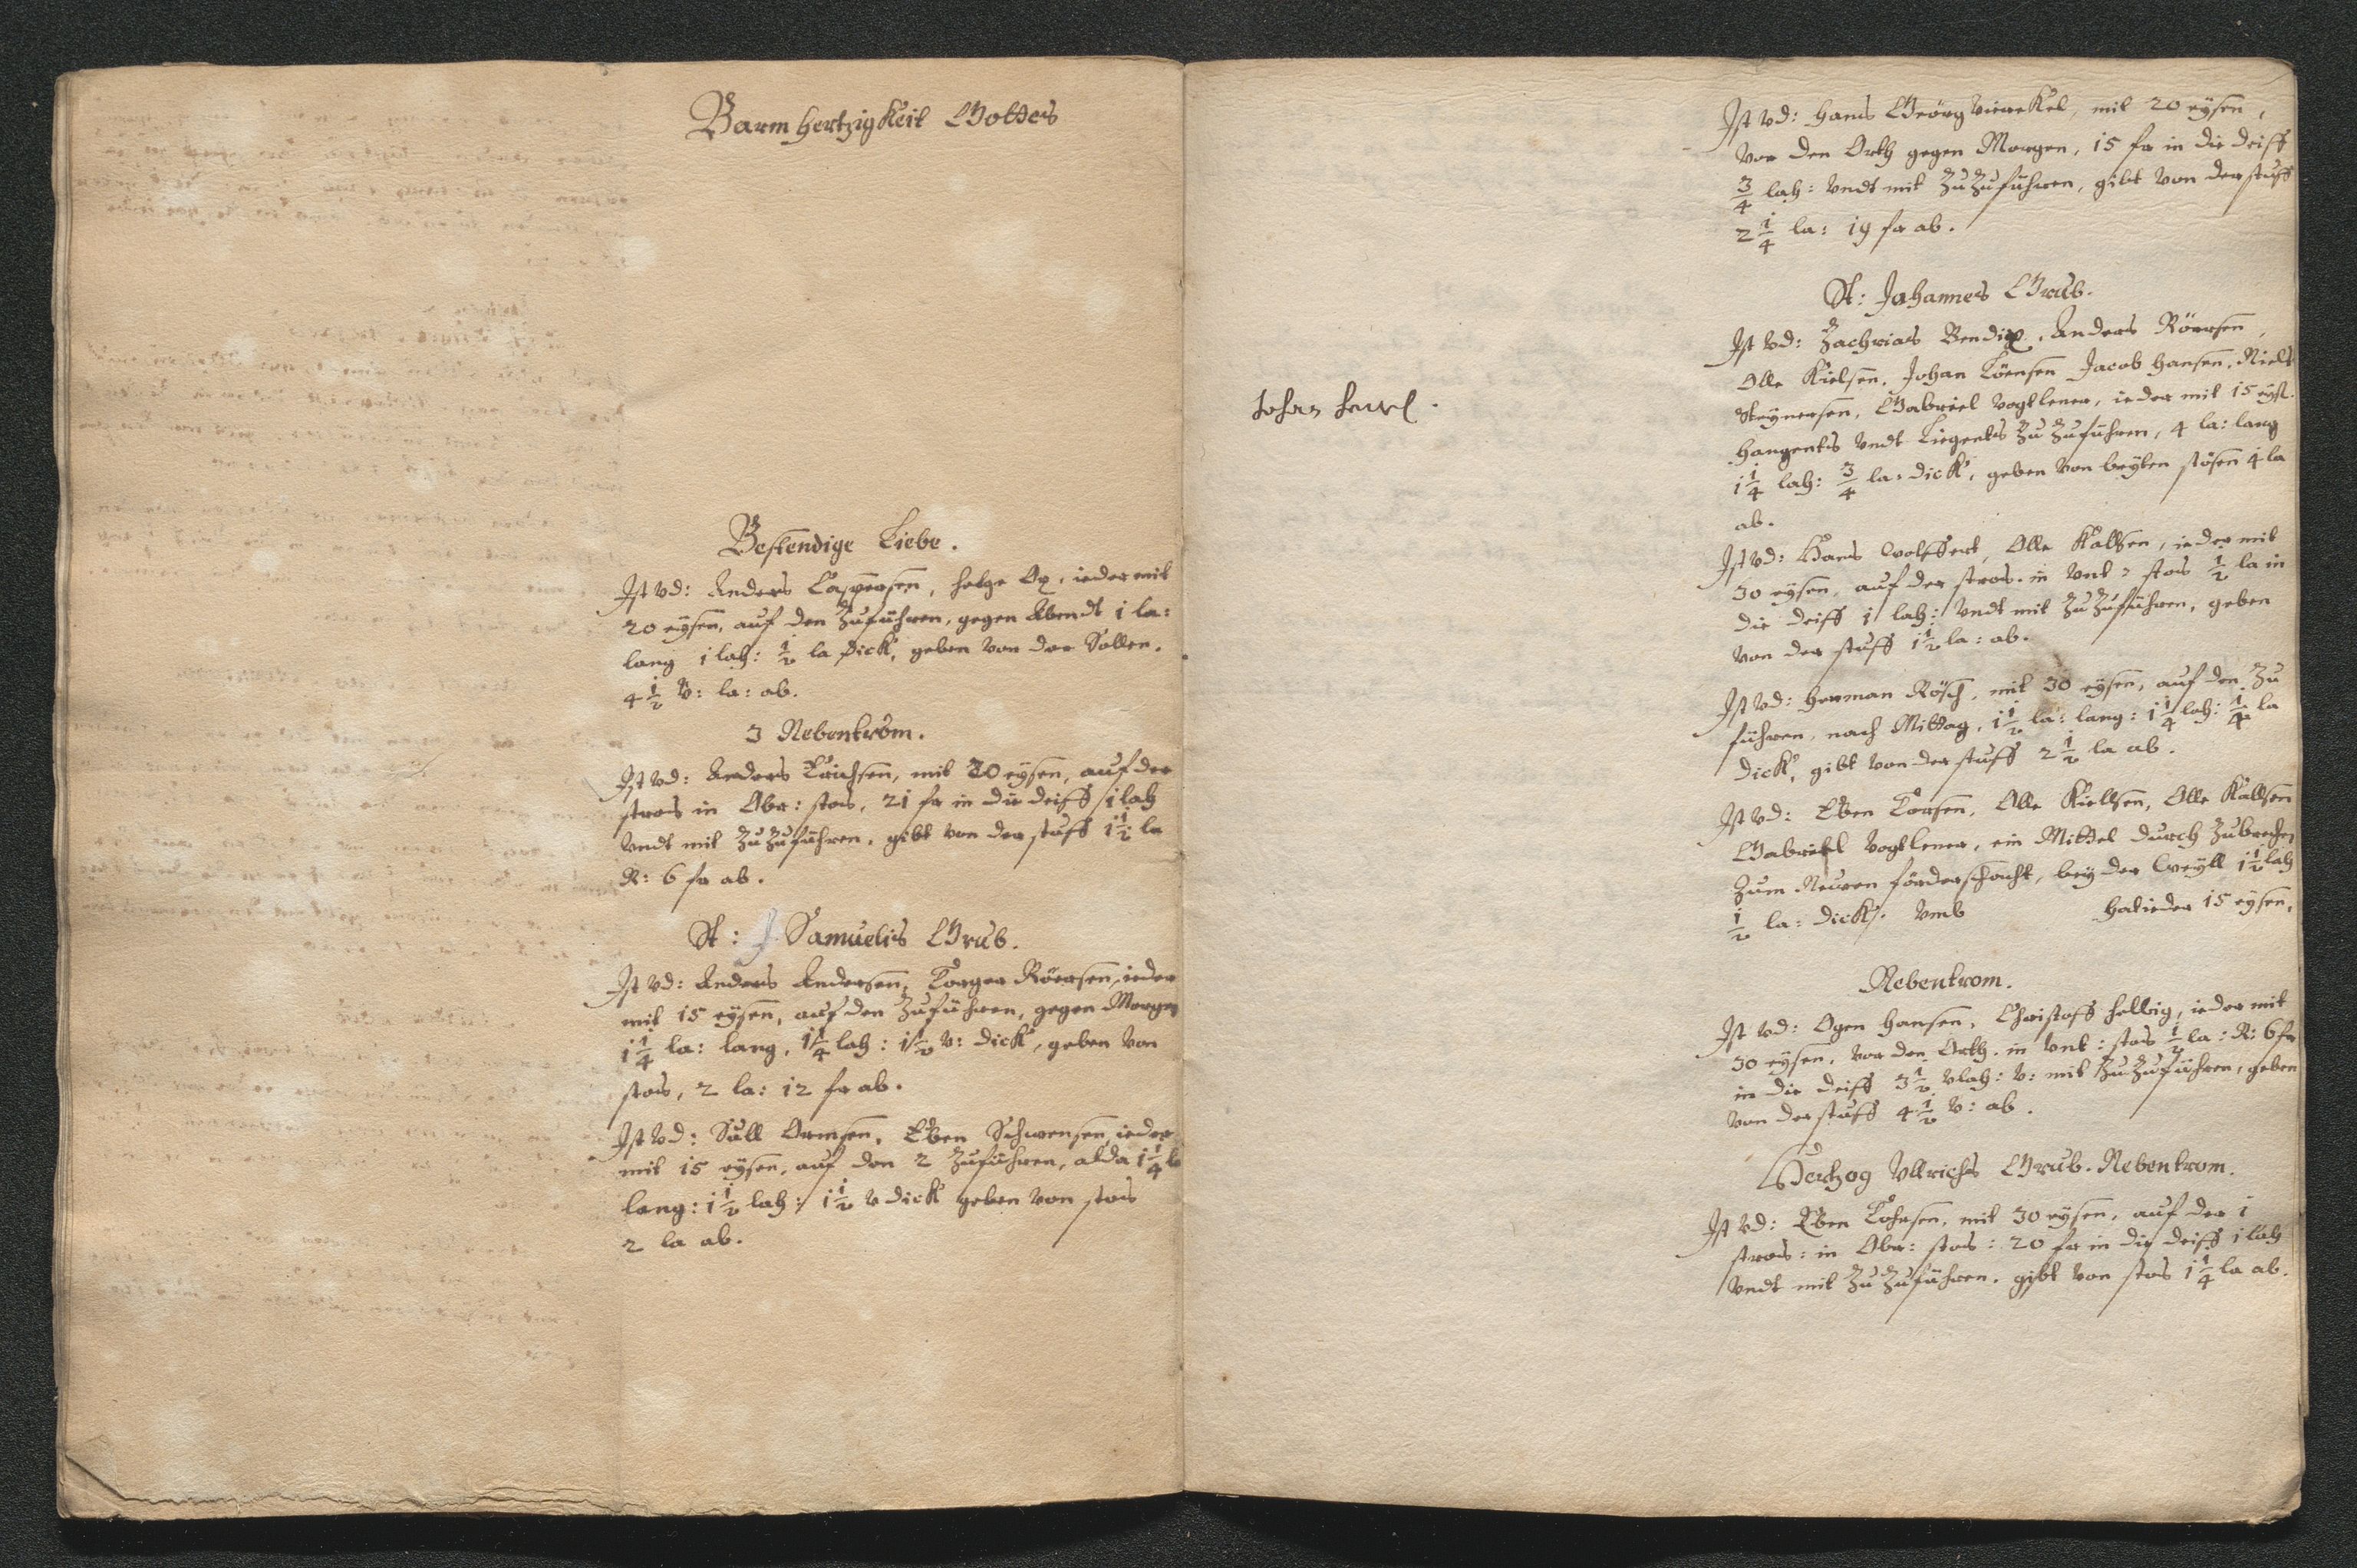 Barmhertzigkeit Gottes
Bestendige Liebe.
Ist vd: Anders Caspersen, helge Ox, ieder mit
20 eÿsen, auf den Zuführen, gegen Abendt 1 la:
lang 1 lah: 1/2 la dick, geben von der Sollen.
4 1/2 v: la: ab.
3 Nebentrom.
Ist vd: Anders Erichsen, mit 20 eÿsen, auf der
stros in Obr: stos, 21 fr in die deiff 1 lah
Vndt mit ZuZuführen, gibt von der stuff 1 1/2 la
R: 6 fr ab.
St: Samuelis Grub.
Ist vd: Anders Andersen, Torger Röersen, ieder
mit 15 eÿsen, auf den Zuführen, gegen Morgen
1 1/4 la: lang, 1 1/4 lah: 1 1/2 v: dick, geben von
stos, 2 la: 12 fr ab.
Ist vd: Süll Ormsen, Eben Schwensen, ieder
mit 15 eÿsen, auf den 2 Zuführen, alda 1 1/4 la
lang: 1 1/2 lah: 1 1/2 v dick geben von stos
2 la ab.
Johan
Ist vd: Hans Geörg Vierekel, mit 20 eÿsen,
vor den Orth gegen Morgen, 15 fr in die deiff
3/4 lah: Vndt mit ZuZuführen, gibt von der stuff
2 1/4 la: 19 fr ab.
St: Johannes Grub.
Ist vd: Zachrias Bendix, Anders Röersen,
Olle Kielsen, Johan Löensen Jacob Hansen, Niels
Steÿnersen, Gabriel Vogtlener, ieder mit 15 eÿs.
Hangents Vndt Liegents ZuZuführen, 4 la: lang
1 1/4 lah: 3/4 la: dick, geben von beÿten stösen 4 la
ab.
Ist vd: Hans Wolffert, Olle Kallsen, ieder mit
30 eÿsen, auf der stros. in Vnt: stos 1/2 la in
die deiff 1 lah: Vndt mit ZuZuführen, geben
von der stuff 1 1/2 la: ab.
Ist vd: Herman Rösch, mit 30 eÿsen, auf den Zu
führen, nach Mittag, 1 1/2 la: lang: 1 1/4 lah: 1/4 la
dick, gibt von der stuff 2 1/2 la ab.
Ist vd: Eben Torsen, Olle Kiellsen, Olle Kallsen
Gabriel Vogtlener, ein Mittel durch Zubrechen
Zum Neuen förderschacht, beÿ der Weÿll 1 1/2 lah
1/2 la: dick. Vmb hat ieder 15 eÿsen.
Nebentrom.
Ist vd: Ogen Hansen, Christoff Hellwig, ieder mit
30 eÿsen, vor den Orth. in Vnt: stos 1/2 la: R: 6 fr
in die deiff 3 1/2 vlah: v: mit ZuZuführen, geben
von der stuff 4 1/2 v: ab.
Hertzog Vllrichs Grub. Nebentrom.
Ist vd: Eben Tohrsen, mit 30 eÿsen, auf der 1
stros: in Obr: stos: 20 fr in die deiff 1 lah
Vndt mit ZuZuführen. gibt von stos 1 1/4 la ab.